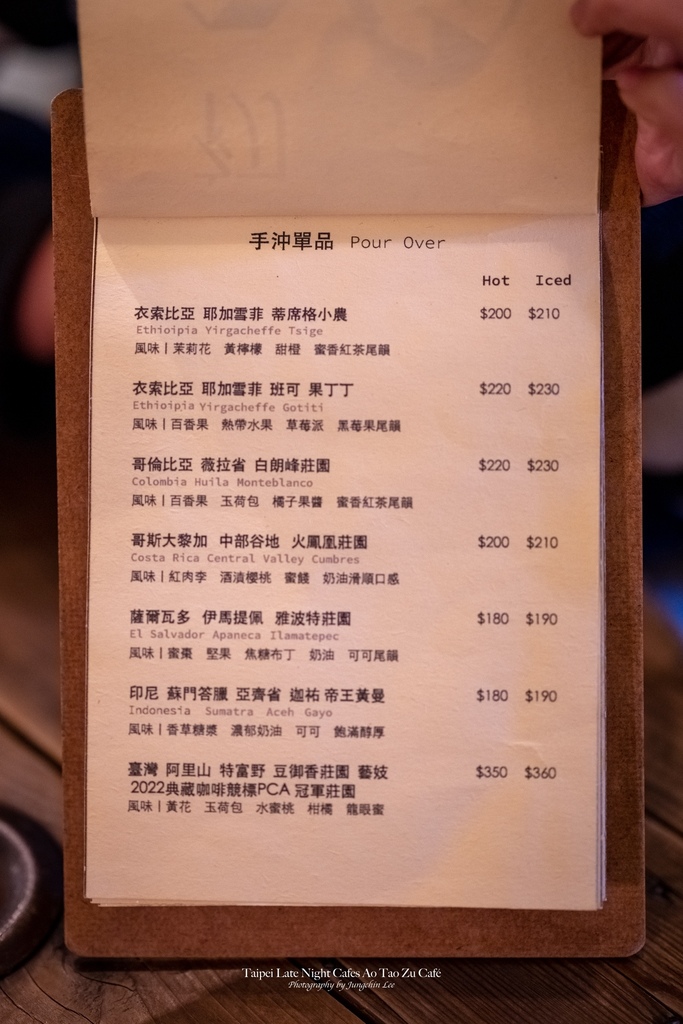 手沖單品 Pour Over
Hot Iced
衣索比亞 耶加雪菲 蒂席格小農 $200 $210
Ethioipia Yirgacheffe Tsige
風味|茉莉花 黃檸檬 甜橙 蜜香紅茶尾韻
衣索比亞 耶加雪菲 班可 果丁丁 $220 $230
Ethioipia Yirgacheffe Gotiti
風味|百香果 熱帶水果 草莓派 黑莓果尾韻
哥倫比亞 薇拉省 白朗峰莊園 $220 $230
Colombia Huila Monteblanco
風味|百香果 玉荷包 橘子果醬 蜜香紅茶尾韻
哥斯大黎加 中部谷地 火鳳凰莊園 $200 $210
Costa Rica Central Valley Cumbres
風味|紅肉李 酒漬櫻桃 蜜餞 奶油滑順口感
薩爾瓦多 伊馬提佩 雅波特莊園 $180 $190
El Salvador Apaneca Ilamatepec
風味|蜜棗 堅果 焦糖布丁 奶油 可可尾韻
印尼 蘇門答臘 亞齊省 迦祐 帝王黃曼 $180 $190
Indonesia Sumatra Aceh Gayo
風味|香草糖漿 濃郁奶油 可可 飽滿醇厚
臺灣 阿里山 特富野 豆御香莊園 藝妓 $350 $360
2022典藏咖啡競標PCA 冠軍莊園
風味|黃花 玉荷包 水蜜桃 柑橘 龍眼蜜
Taipei Late Night Cafes Ao Tao Zu Café
Photography by Jungchin Lee